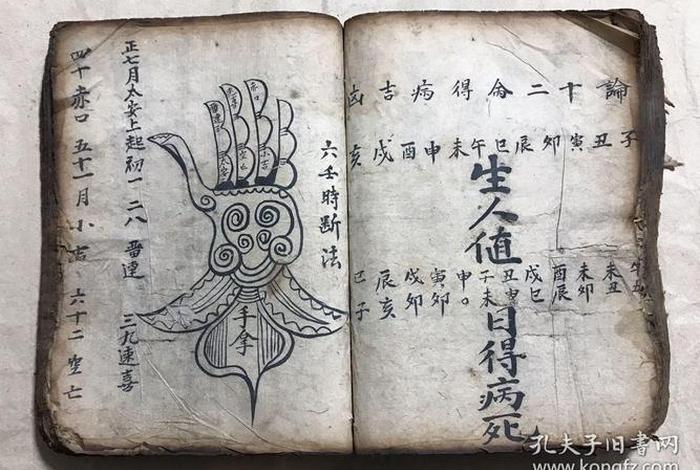 論十二命得病吉凶
子丑寅卯辰巳午未申酉戌亥
生人值
未丑
未卯
酉辰
戌巳
子未
申。
寅卯
戌卯
辰亥
巳子
日得病死
六壬時断法
赤口
小吉
空亡
太安
手拿
正七月太安上起初一二八 畱連 三九速喜
四十赤口 五十一月小吉 六十二空亡
孔夫子旧书网
www.kongfz.com